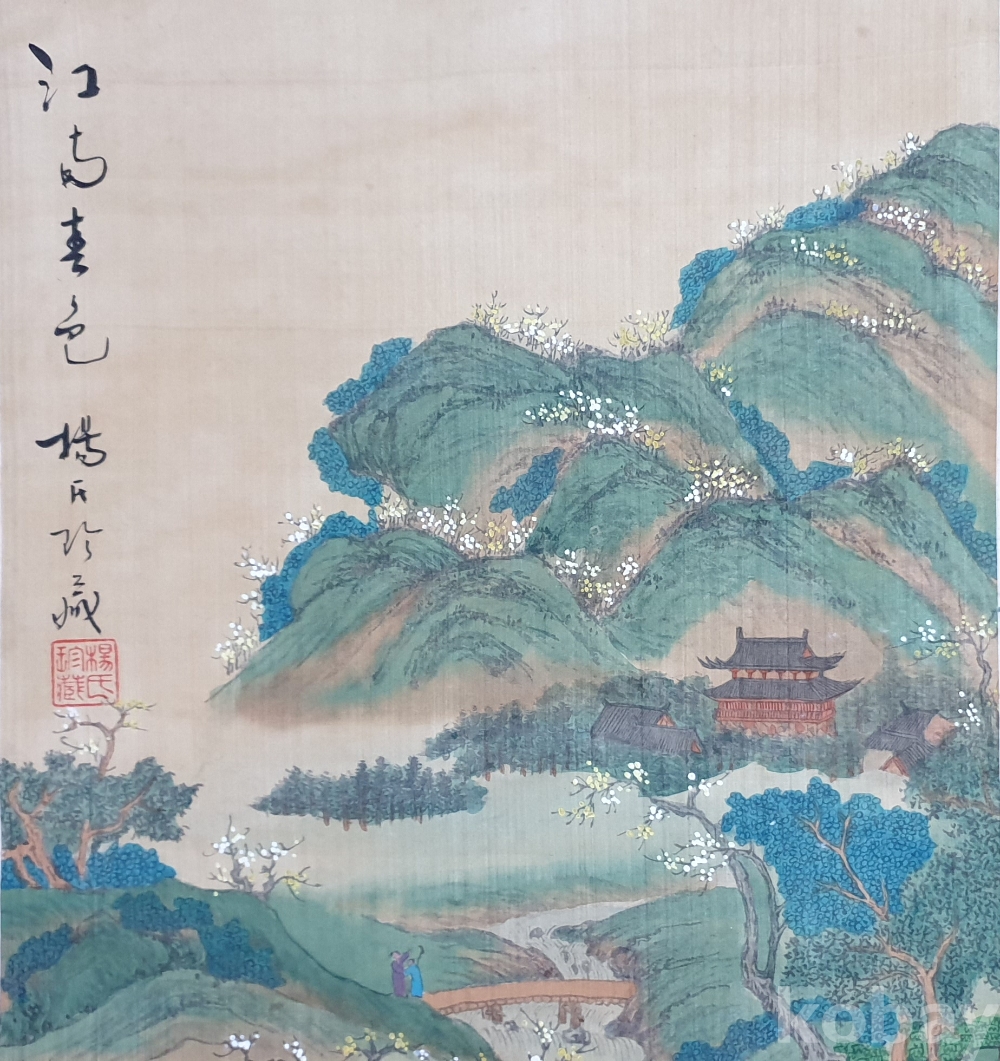 江南春色
楊氏珍藏
楊氏
珍藏
kobay